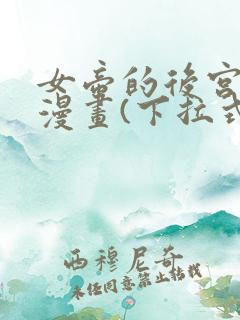 女帝的後宮
漫畫(下拉式
西穆尼奇
未任同意禁止轉載